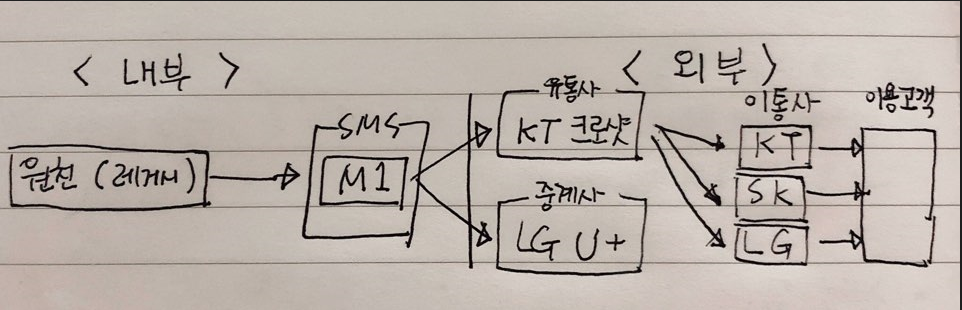 < 내부 >
< 외부 >
원천 (레거시)
SMS
M1
유통사
KT 크로샷
중계사
LG U+
이통사
KT
SK
LG
이용고객